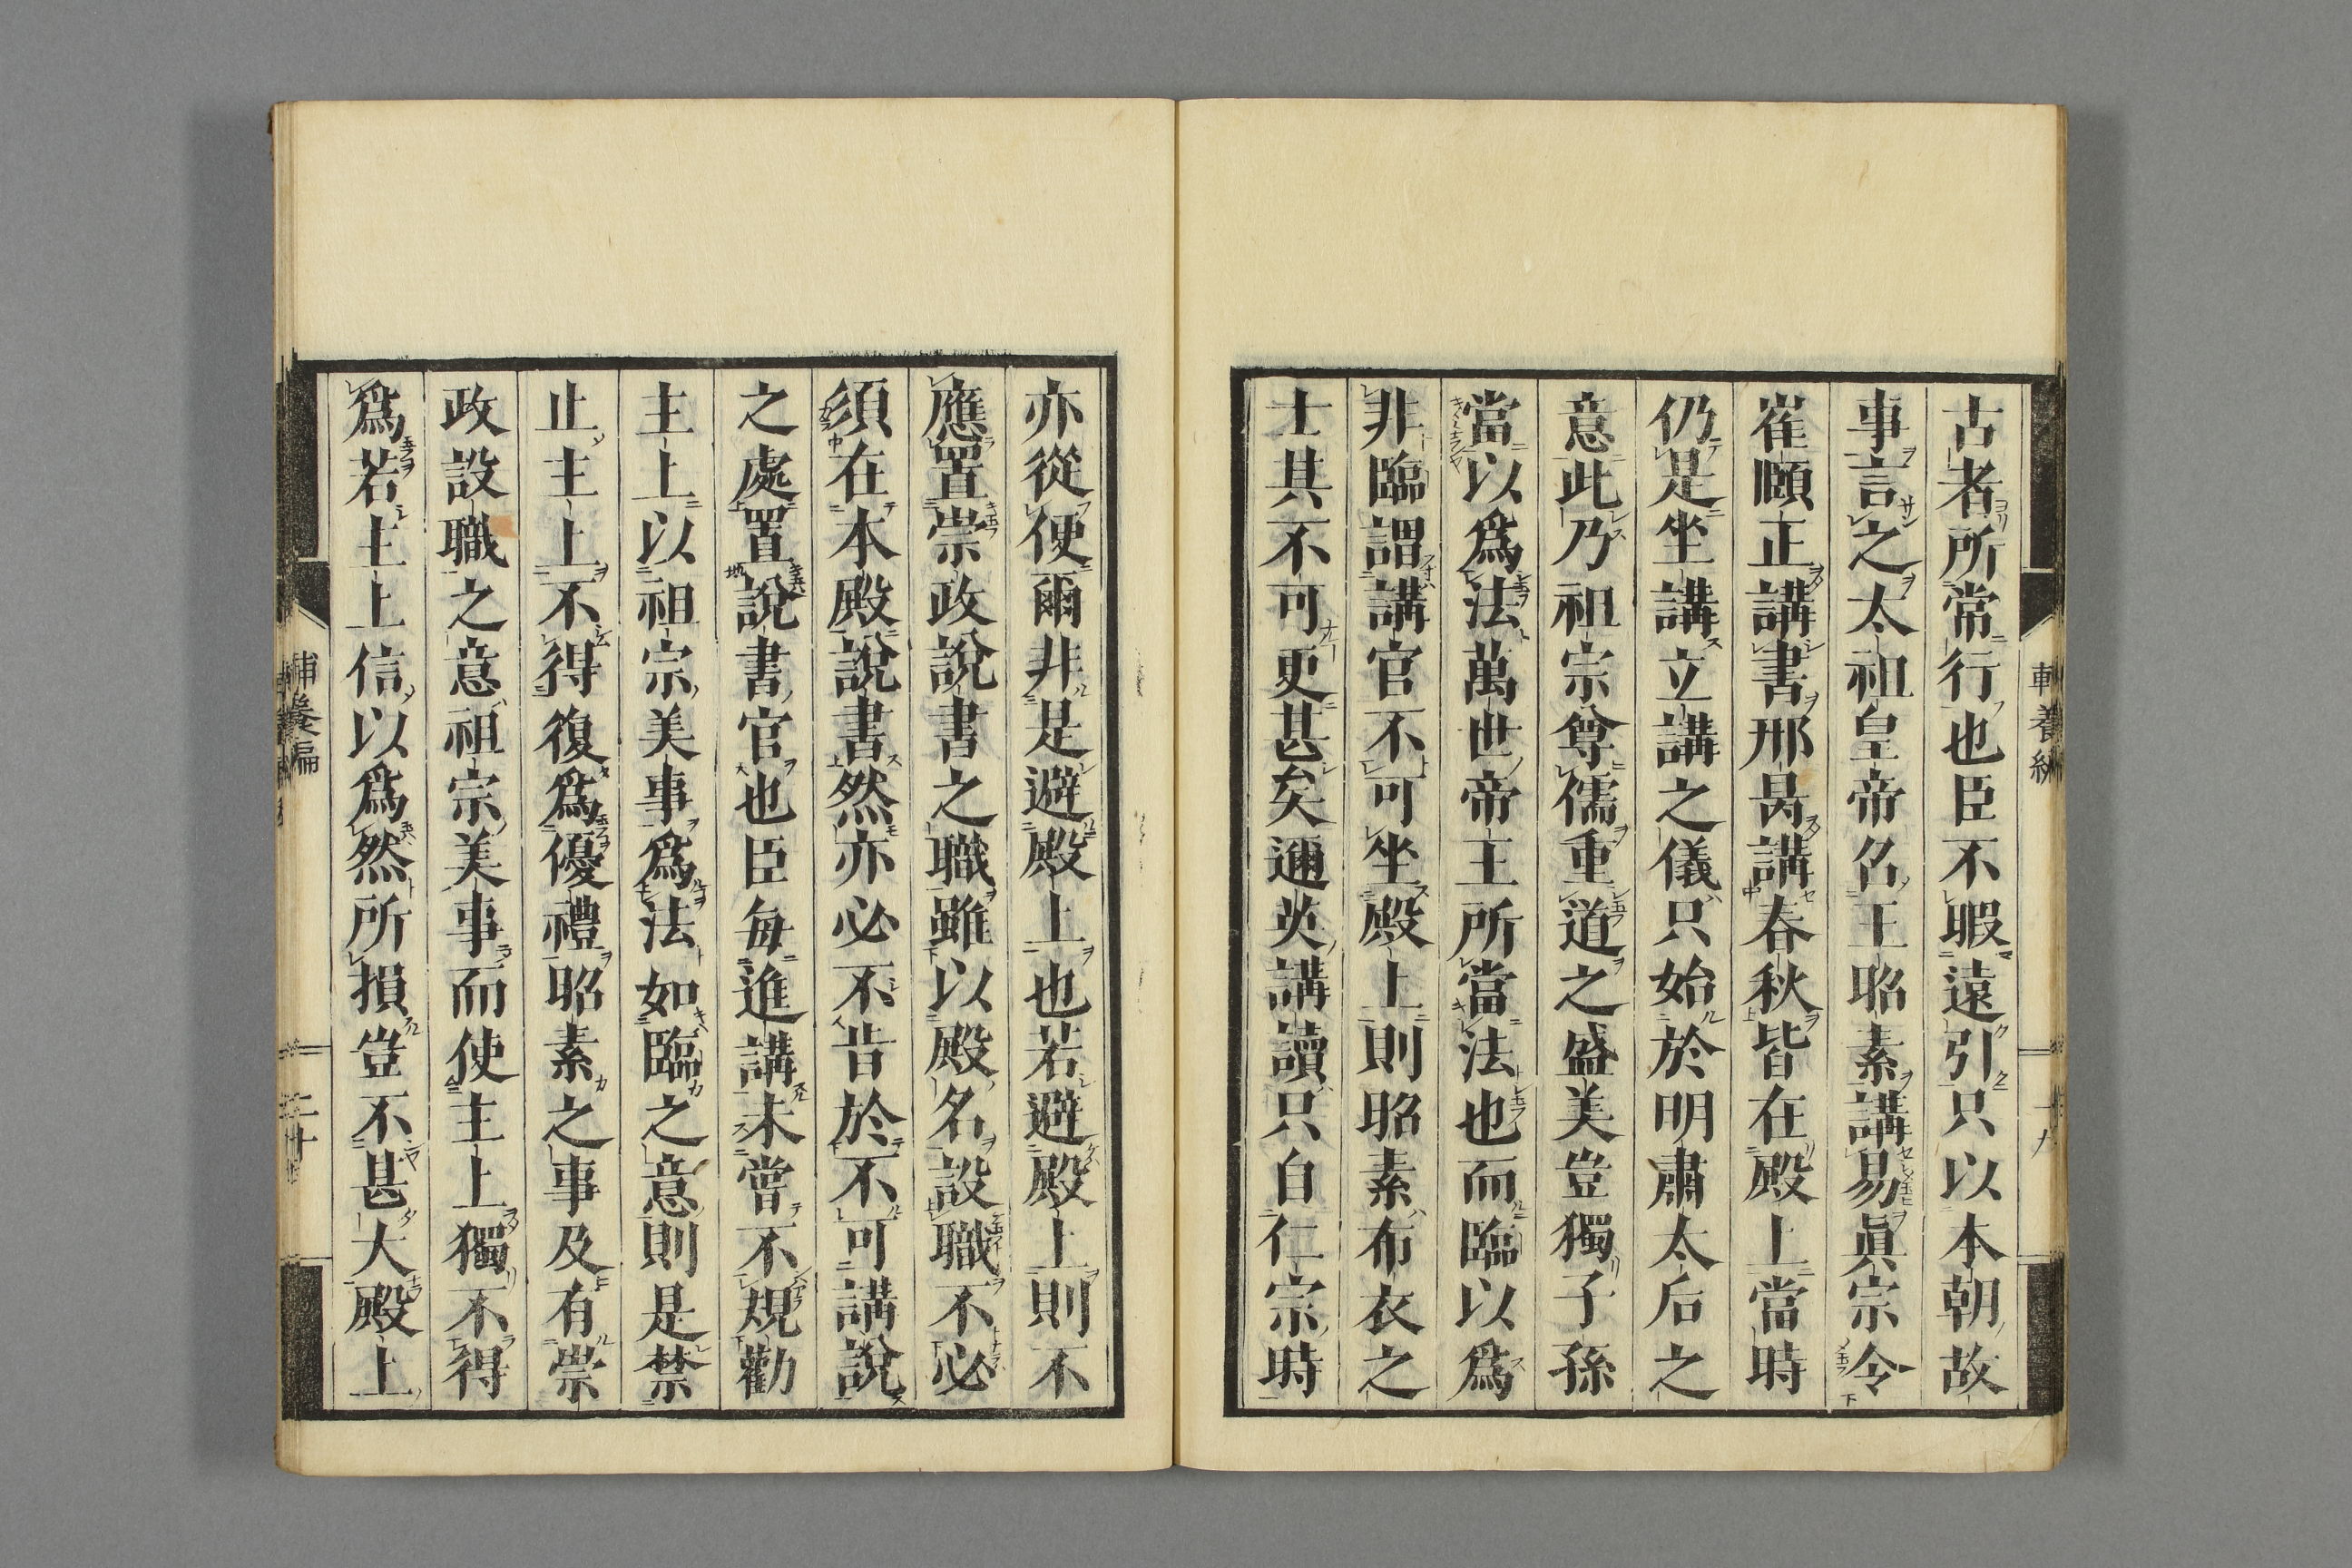 古者所常行也臣不暇遠引只以本朝故
事言之太祖皇帝名王昭素講易眞宗令
崔頤正講書邢昺講春秋皆在殿上當時
仍是坐講立講之儀只始於明肅太后之
意此乃祖宗尊儒重道之盛美豈獨子孫
當以爲法萬世帝王所當法也而臨以爲
非臨謂講官不可坐殿上則昭素布衣之
士其不可更甚矣邇英講讀只自仁宗時
亦從便爾非是避殿上也若避殿上則不
應置崇政說書之職雖以殿名設職不必
須在本殿說書然亦必不昔於不可講說
之處置說書官也臣每進講未嘗不規勸
主上以祖宗美事爲法如臨之意則是禁
止主上不得復爲優禮昭素之事及有崇
政設職之意祖宗美事而使主上獨不得
爲若主上信以爲然所損豈不甚大殿上
十九
二十